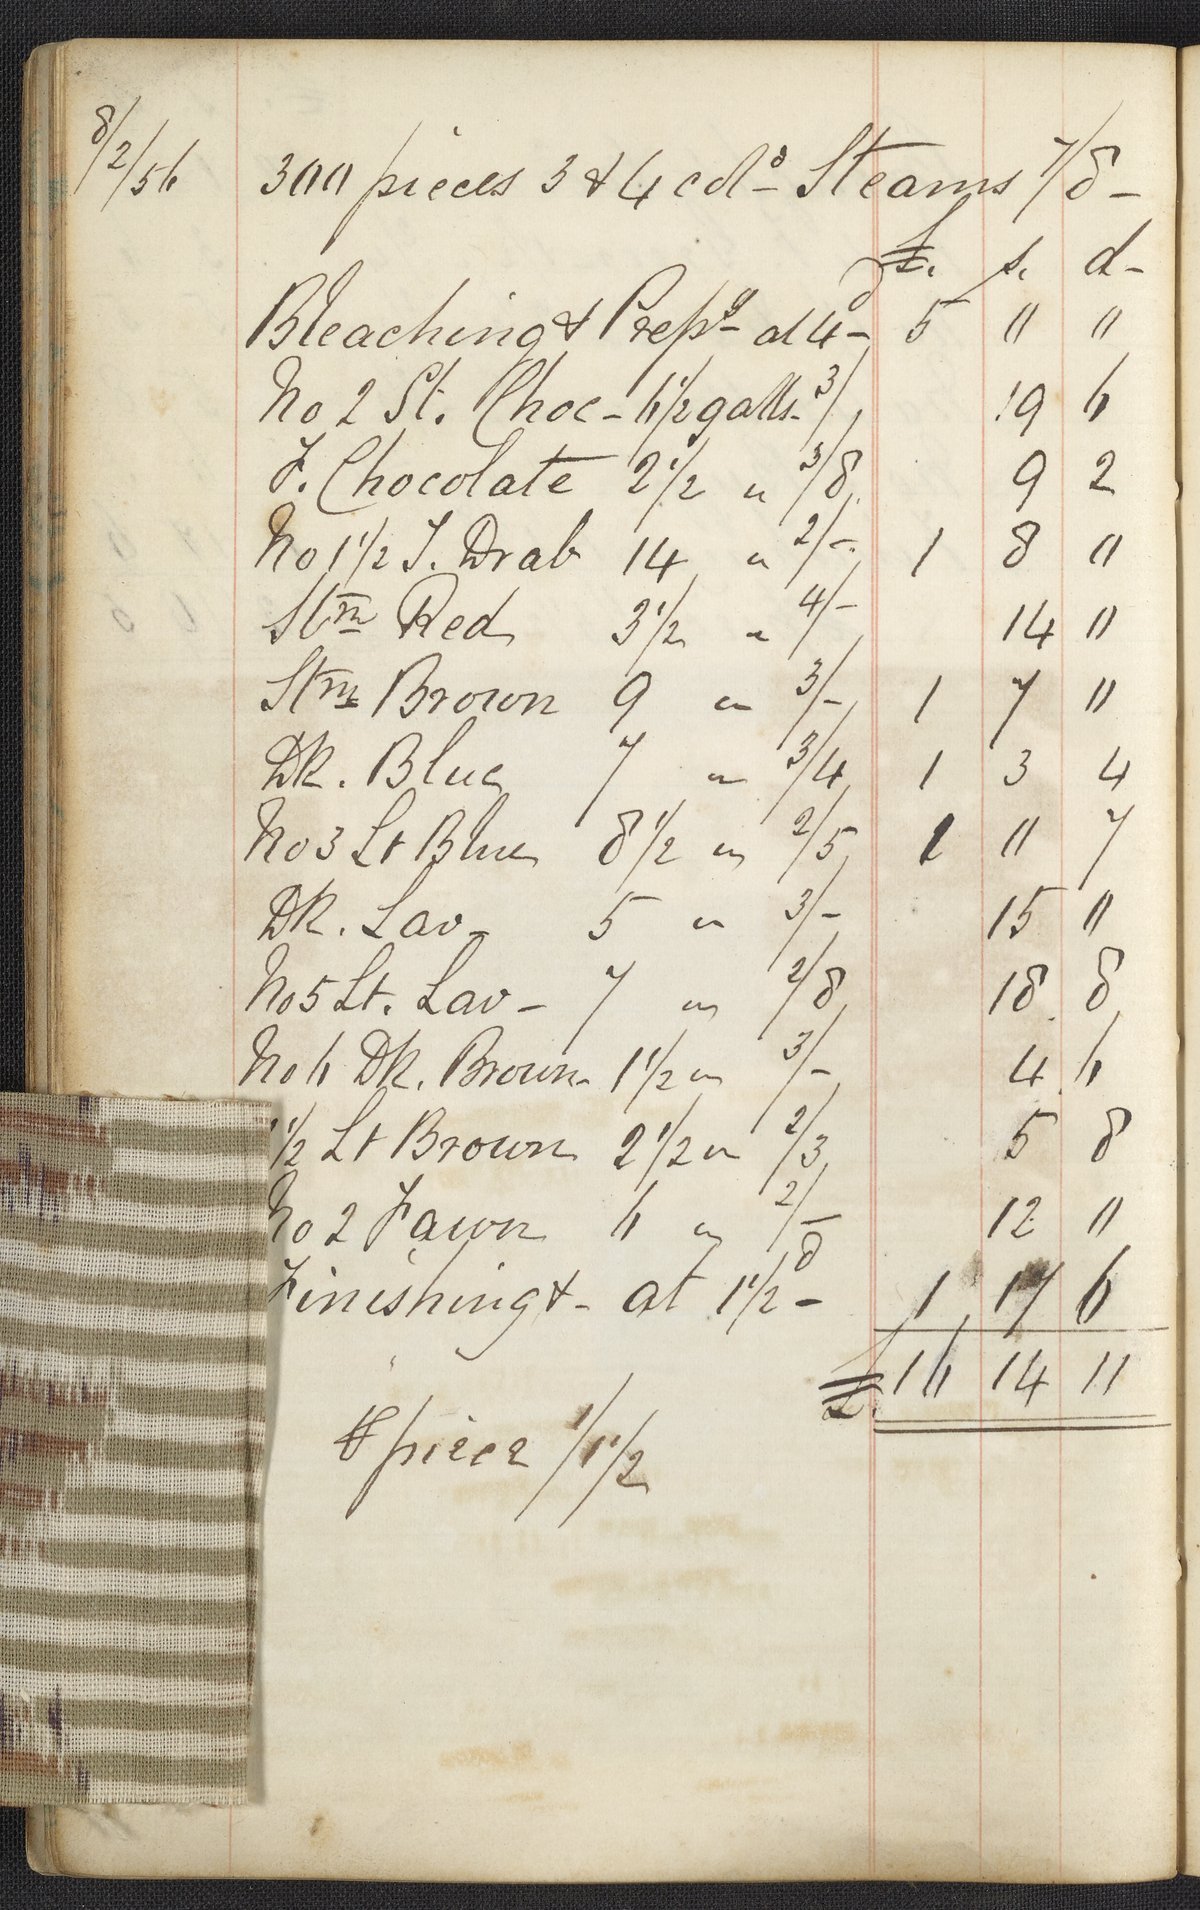 8/2/56 300 pieces 3 & 4 cdˢ Steams 7/8 -
£. s. d -
Bleaching & Prepᵍ at 4ᵈ - 5 " "
No 2 St. Choc - 6 1/2 galls - 3/ 19 6
F. Chocolate 2 1/2 " 3/8 9 2
No 1 1/2 F. Drab 14 " 2/- 1 8 "
Stm Red 3 1/2 " 4/- 14 "
Stm Brown 9 " 3/- 1 7 "
Dk. Blue 7 " 3/4 1 3 4
No 3 Lt Blue 8 1/2 " 2/5 1 " 7
Dk. Lav - 5 " 3/- 15 "
No 5 Lt. Lav - 7 " 2/8 18 8
No 6 Dk. Brown - 1 1/2 " 3/- 4 6
1/2 Lt Brown 2 1/2 " 2/3 5 8
No 2 Fawn 6 " 2/- 12 "
Finishing & - at 1 1/2ᵈ - 1 17 6
£. 16 14 11
⅌ piece 1/1 1/2